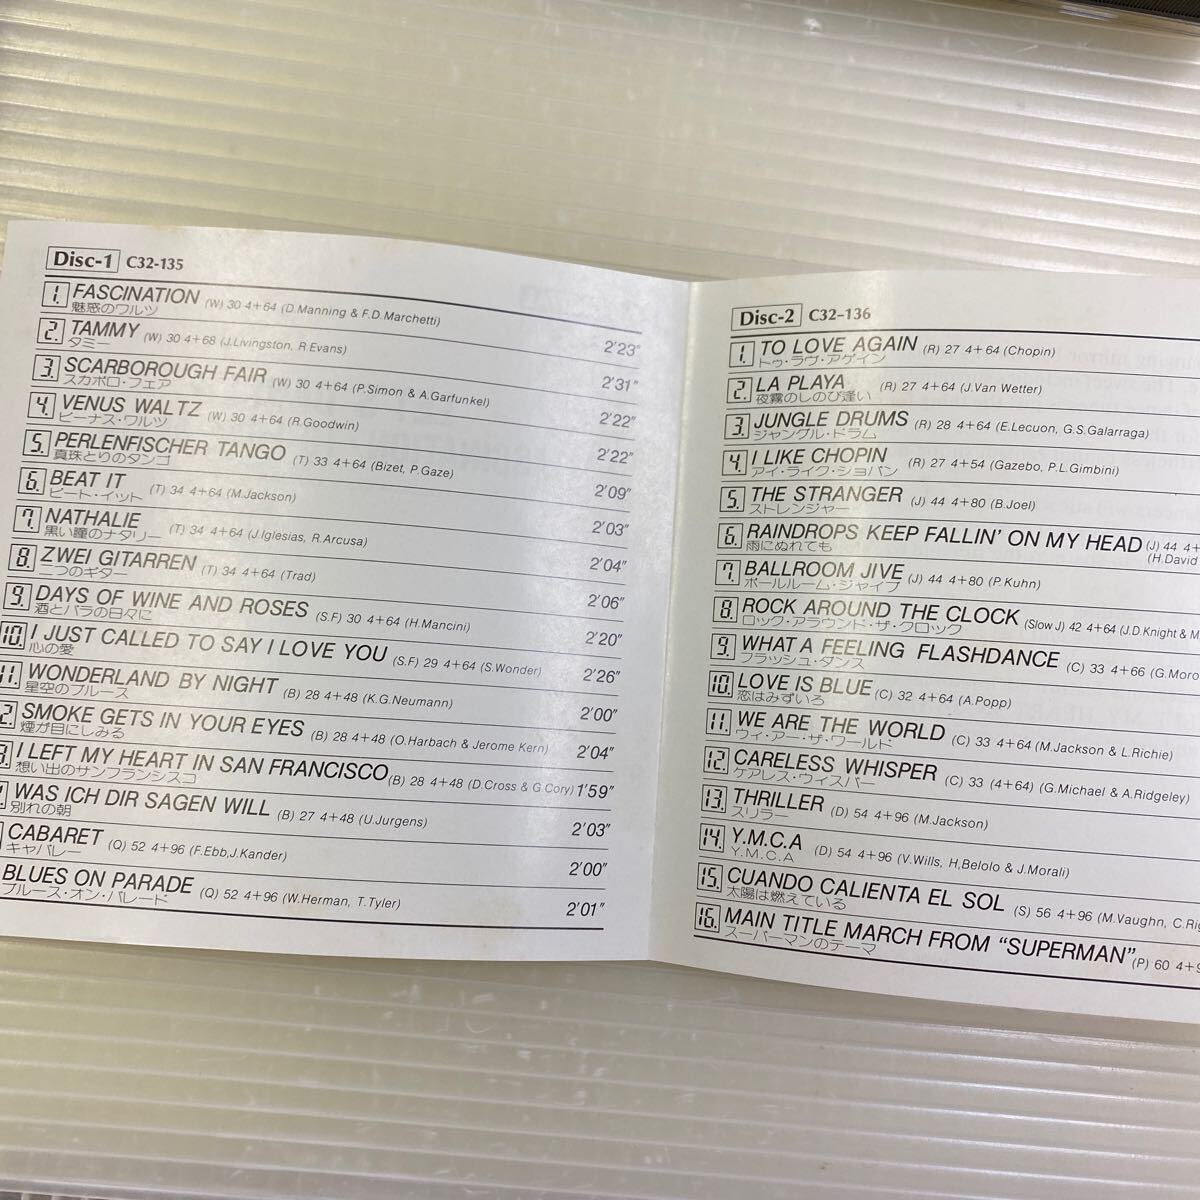 Disc-1 C32-135
1. FASCINATION (W) 30 4+64 (D.Manning & F.D.Marchetti) 2'23"
魅惑のワルツ
2. TAMMY (W) 30 4+68 (J.Livingston, R.Evans) 2'31"
タミー
3. SCARBOROUGH FAIR (W) 30 4+64 (P.Simon & A.Garfunkel) 2'22"
スカボロ・フェア
4. VENUS WALTZ (W) 30 4+64 (R.Goodwin) 2'22"
ビーナス・ワルツ
5. PERLENFISCHER TANGO (T) 33 4+64 (Bizet, P.Gaze) 2'09"
真珠とりのタンゴ
6. BEAT IT (T) 34 4+64 (M.Jackson) 2'03"
ビート・イット
7. NATHALIE (T) 34 4+64 (J.Iglesias, R.Arcusa) 2'04"
黒い瞳のナタリー
8. ZWEI GITARREN (T) 34 4+64 (Trad) 2'06"
二つのギター
9. DAYS OF WINE AND ROSES (S.F) 30 4+64 (H.Mancini) 2'20"
酒とバラの日々に
10. I JUST CALLED TO SAY I LOVE YOU (S.F) 29 4+64 (S.Wonder) 2'26"
心の愛
11. WONDERLAND BY NIGHT (B) 28 4+48 (K.G.Neumann) 2'00"
星空のブルース
2. SMOKE GETS IN YOUR EYES (B) 28 4+48 (O.Harbach & Jerome Kern) 2'04"
煙が目にしみる
3. I LEFT MY HEART IN SAN FRANCISCO (B) 28 4+48 (D.Cross & G.Cory) 1'59"
想い出のサンフランシスコ
WAS ICH DIR SAGEN WILL (B) 27 4+48 (U.Jurgens) 2'03"
別れの朝
CABARET (Q) 52 4+96 (F.Ebb,J.Kander) 2'00"
キャバレー
BLUES ON PARADE (Q) 52 4+96 (W.Herman, T.Tyler) 2'01"
ブルース・オン・パレード
Disc-2 C32-136
1. TO LOVE AGAIN (R) 27 4+64 (Chopin)
トゥ・ラヴ・アゲイン
2. LA PLAYA (R) 27 4+64 (J.Van Wetter)
夜霧のしのび逢い
3. JUNGLE DRUMS (R) 28 4+64 (E.Lecuon, G.S.Galarraga)
ジャングル・ドラム
4. I LIKE CHOPIN (R) 27 4+54 (Gazebo, P.L.Gimbini)
アイ・ライク・ショパン
5. THE STRANGER (J) 44 4+80 (B.Joel)
ストレンジャー
6. RAINDROPS KEEP FALLIN' ON MY HEAD (J) 44 4+
雨にぬれても (H.David
7. BALLROOM JIVE (J) 44 4+80 (P.Kuhn)
ボールルーム・ジャイブ
8. ROCK AROUND THE CLOCK (Slow J) 42 4+64 (J.D.Knight & M
ロック・アラウンド・ザ・クロック
9. WHAT A FEELING FLASHDANCE (C) 33 4+66 (G.Moro
フラッシュ・ダンス
10. LOVE IS BLUE (C) 32 4+64 (A.Popp)
恋はみずいろ
11. WE ARE THE WORLD (C) 33 4+64 (M.Jackson & L.Richie)
ウィ・アー・ザ・ワールド
12. CARELESS WHISPER (C) 33 (4+64) (G.Michael & A.Ridgeley)
ケアレス・ウィスパー
13. THRILLER (D) 54 4+96 (M.Jackson)
スリラー
14. Y.M.C.A (D) 54 4+96 (V.Wills, H,Belolo & J.Morali)
Y.M.C.A
15. CUANDO CALIENTA EL SOL (S) 56 4+96 (M.Vaughn, C.Rig
太陽は燃えている
16. MAIN TITLE MARCH FROM "SUPERMAN" (P) 60 4+9
スーパーマンのテーマ